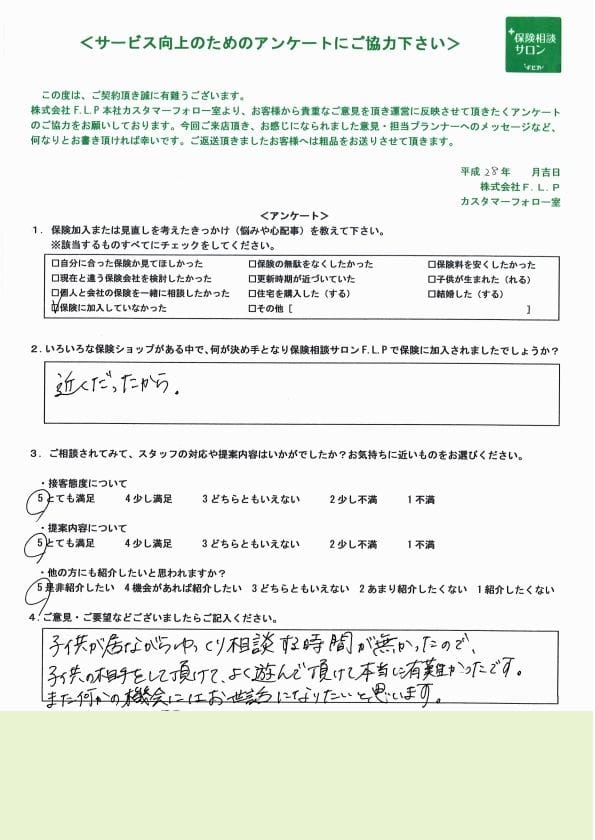 ＜サービス向上のためのアンケートにご協力下さい＞
保険相談
サロン
この度は、ご契約頂き誠に有難うございます。
株式会社F.L.P本社カスタマーフォロー室より、お客様から貴重なご意見を頂き運営に反映させて頂きたくアンケート
のご協力をお願いしております。今回ご来店頂き、お感じになられました意見・担当プランナーへのメッセージなど、
何なりとお書き頂ければ幸いです。ご返送頂きましたお客様へは粗品をお送りさせて頂きます。
平成28年　月吉日
株式会社F.L.P
カスタマーフォロー室
＜アンケート＞
1．保険加入または見直しを考えたきっかけ（悩みや心配事）を教えて下さい。
※該当するものすべてにチェックをしてください。
□自分に合った保険か見てほしかった　□保険の無駄をなくしたかった　□保険料を安くしたかった
□現在と違う保険会社を検討したかった　□更新時期が近づいていた　□子供が生まれた（れる）
□個人と会社の保険を一緒に相談したかった　□住宅を購入した（する）　□結婚した（する）
☑保険に加入していなかった　□その他［　］
2．いろいろな保険ショップがある中で、何が決め手となり保険相談サロンF.L.Pで保険に加入されましたでしょうか？
近くだったから。
3．ご相談されてみて、スタッフの対応や提案内容はいかがでしたか？お気持ちに近いものをお選びください。
・接客態度について
5とても満足　4少し満足　3どちらともいえない　2少し不満　1不満
・提案内容について
5とても満足　4少し満足　3どちらともいえない　2少し不満　1不満
・他の方にも紹介したいと思われますか？
5是非紹介したい　4機会があれば紹介したい　3どちらともいえない　2あまり紹介したくない　1紹介したくない
4．ご意見・ご要望などございましたらご記入ください。
子供が居ながらゆっくり相談する時間が無かったので、
子供の相手をして頂けて、よく遊んで頂けて本当に有難かったです。
また何かの機会にはお世話になりたいと思います。